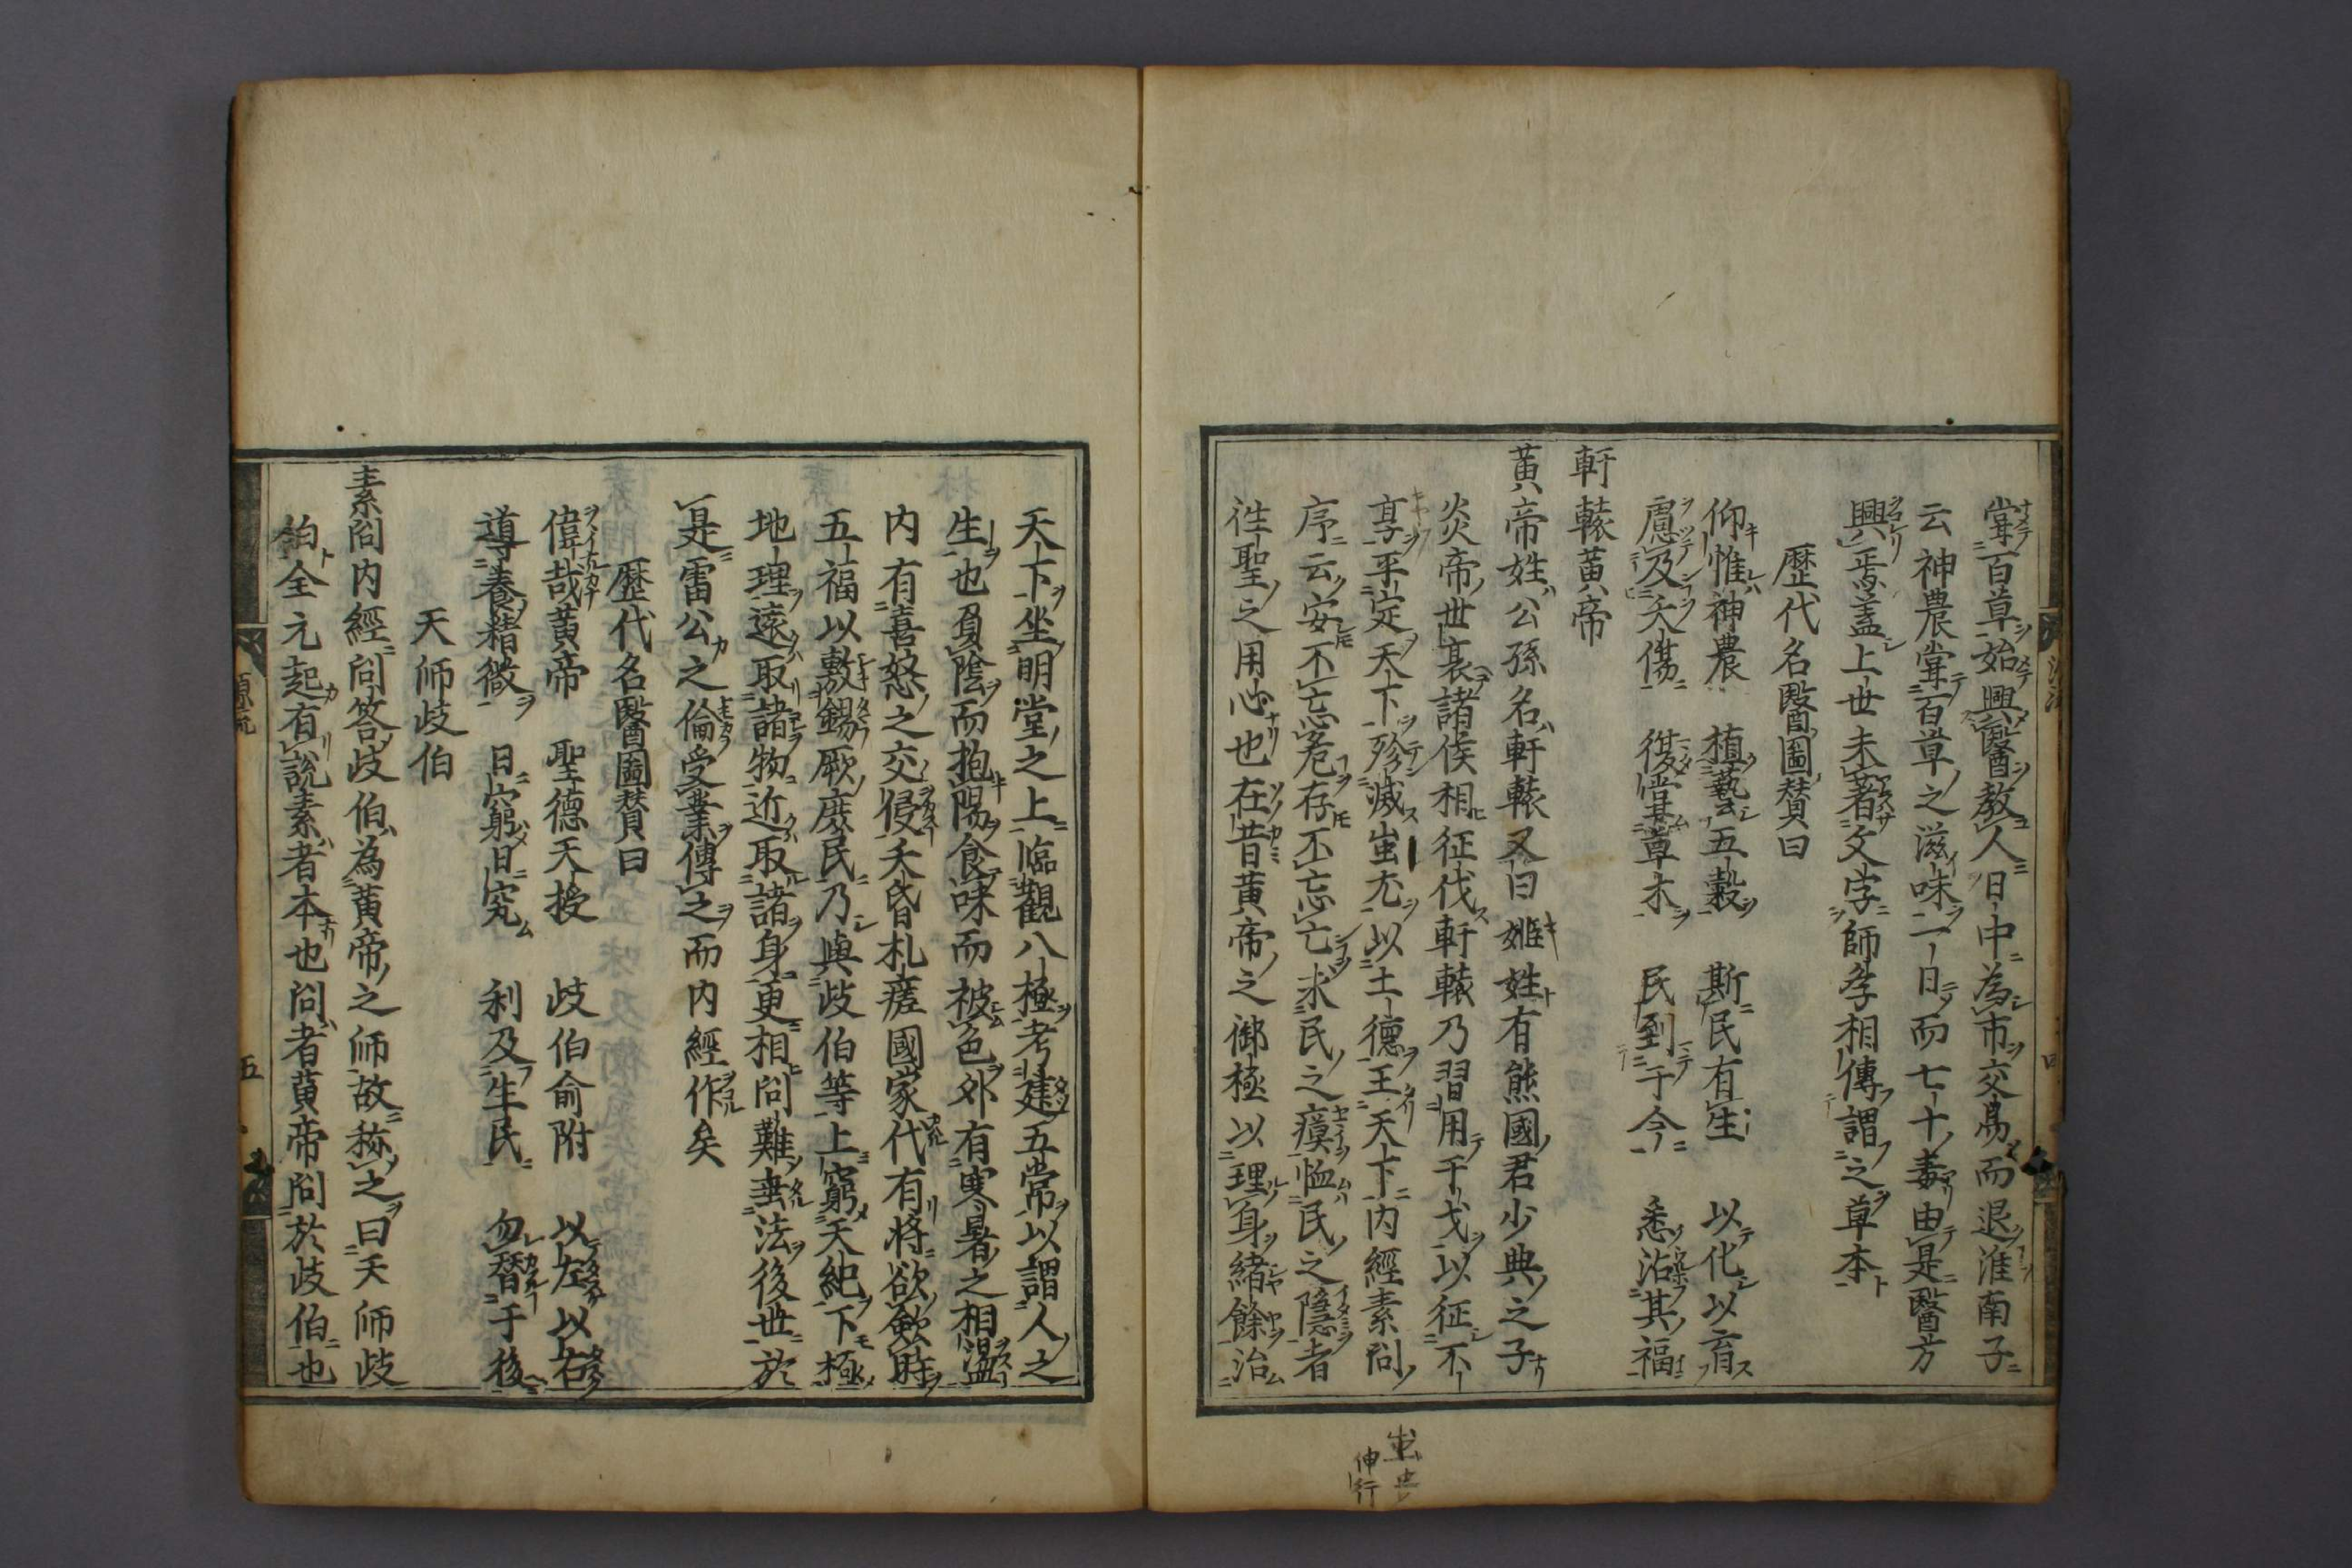 甞百草始興醫教人日中為市交易而退淮南子
云神農甞百草之滋味一日而七十毒由是醫方
興焉盖上世未著文字師孝相傳謂之草本
歷代名醫圖賛曰
仰惟神農　植藝五穀　斯民有生　以化以育
慮及夭傷　復甞草木　民到于今　悉沾其福
軒轅黃帝
黃帝姓公孫名軒轅又曰姬姓有熊國君少典之子
炎帝世衰諸侯相征伐軒轅乃習用干戈以征不
享平定天下殄滅蚩尤以土德王天下内經素問
序云安不忘危存不忘亡求民之瘼恤民之隱者
徃聖之用心也在昔黃帝之御極以理身緒餘治
天下坐明堂之上臨觀八極考建五常以謂人之
生也負陰而抱陽食味而被色外有寒暑之相盪
内有喜怒之交侵夭昏札瘥國家代有將欲歛時
五福以敷錫厥庶民乃與歧伯等上窮天紀下極
地理遠取諸物近取諸身更相問難垂法後世於
是雷公之倫受業傳之而内經作矣
歷代名醫圖賛曰
偉哉黃帝　聖德天授　歧伯俞附　以左以右
導養精微　日窮日究　利及生民　勿替于後
天師歧伯
素問内經問答歧伯為黃帝之師故称之曰天師歧
伯全元起有說素者本也問者黃帝問於歧伯也
五